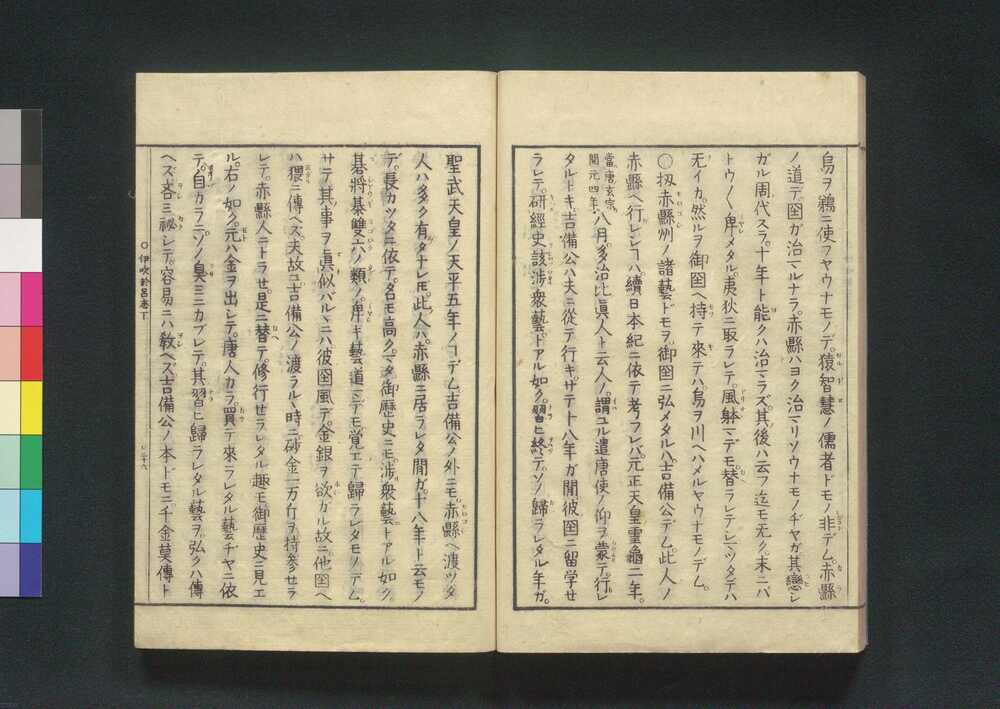 烏ヲ鵜ニ使フヤウナモノデ。猿智慧ノ儒者ドモノ非デム。赤縣
ノ道デ囶ガ治マルナラ。赤縣ハヨク治マリソウナモノヂヤガ其戀シ
ガル周代スラ。十年ト能クハ治マラズ。其後ハ云フ迄モ无ク。末ニハ
トウ〳〵卑メタル夷狄ニ取ラレテ。風躰マデモ替ラレテシマツタデハ
无イカ。然ルヲ御囶ヘ持テ來テハ烏ヲ川ヘハメルヤウナモノデム。
〇扨赤縣州ノ諸藝ドモヲ御囶ニ弘メタルハ。吉備公デム。此人ノ
赤縣ヘ行レシヿハ。續日本紀ニ依テ考フレバ。元正天皇靈龜二年。
當唐玄宗開元四年
八月。多治比眞人ト云人ノ。謂ユル遣唐使ノ仰ヲ蒙テ。行レ
タルトキ。吉備公ハ夫ニ從テ行キ。サテ十八年ガ閒彼囶ニ留学セ
ラレテ。研經史該渉衆藝。トアル如ク。習ヒ終テ。ソノ歸ラレタル年ガ。
聖武天皇ノ天平五年ノヿデム。吉備公ノ外ニモ赤縣ヘ渡ツタ
人ハ多ク有タナレ𪜈。此人ハ。赤縣ニ居ラレタ閒ガ。十八年ト云モノ
デ。長カツタニ依テ。名モ高ク。マタ御歴史ニモ。渉衆藝。トアル如ク
碁將棊雙六ノ類ノ卑キ藝道マデモ。覚エテ歸ラレタモノデム。
サテ其事ヲ眞似バルヽニハ彼囶風デ。金銀ヲ欲ガル故ニ。他囶ヘ
ハ猥ニ傳ヘズ。夫故吉備公ノ渡ラルヽ時ニ。砂金一万斤ヲ持参セラ
レテ。赤縣人ニトラせ。是ニ替テ。修行セラレタル趣モ御歴史ニ見エ
ル。右ノ如ク。元ハ金ヲ出シテ。唐人カラ。買テ來ラレタル藝ヂヤニ依
テ。自カラニ。ソノ臭ミニカブレテ。其習ヒ歸ラレタル藝ヲ。弘クハ傳
ヘズ。吝ミ祕シテ。容易ニハ教ヘズ。吉備公ノ本ドモニ。千金莫傳ト
〇伊吹於呂志下